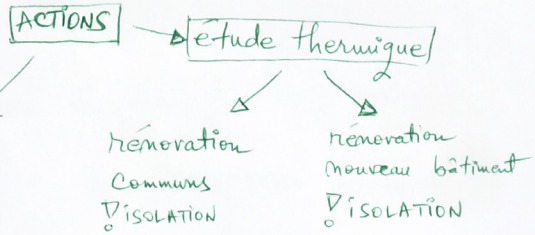 ACTIONS
étude thermique
rénovation
communs
! ISOLATION
rénovation
nouveau bâtiment
! ISOLATION